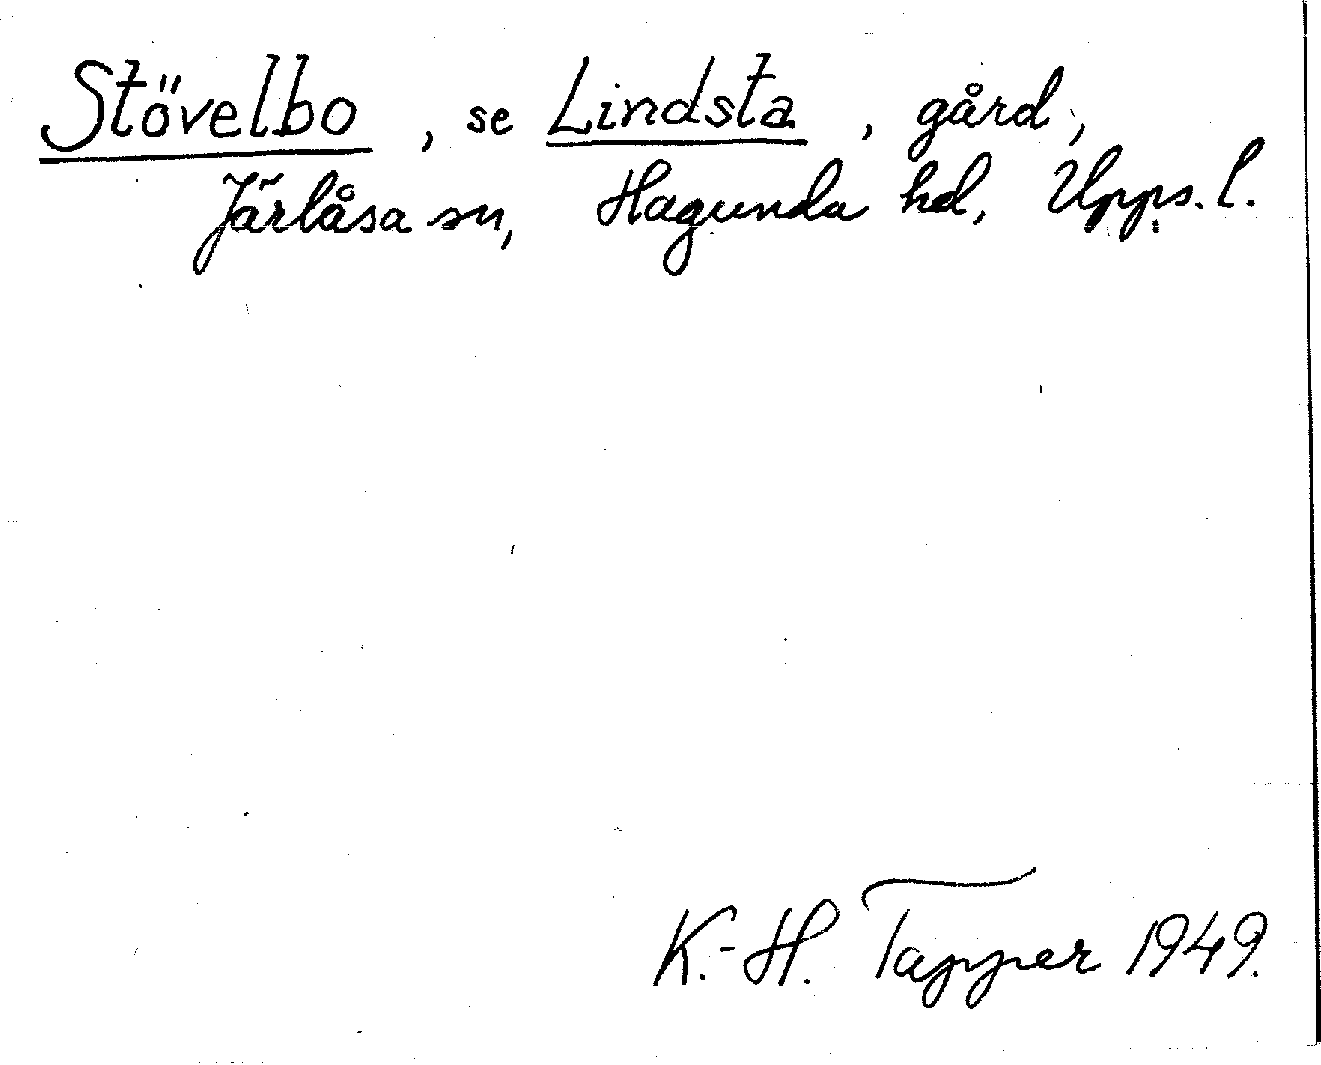 Stövelbo, se Lindsta, gård,
Järlåsa sn, Hagunda hd, Upps. l.
K.-H. Tapper 1949.